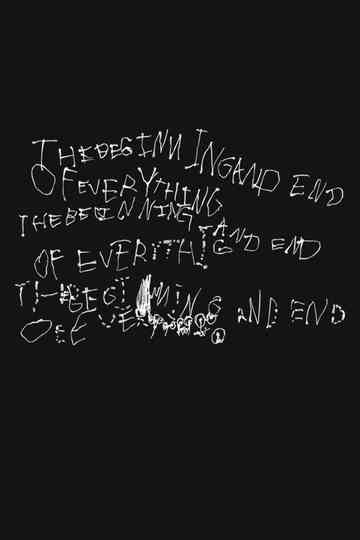 THEBEGINN INGAND END
OFEVERYTHING
THEBEGINNING AND END
OF EVERYTHING
THEBEGINNING AND END
OF E